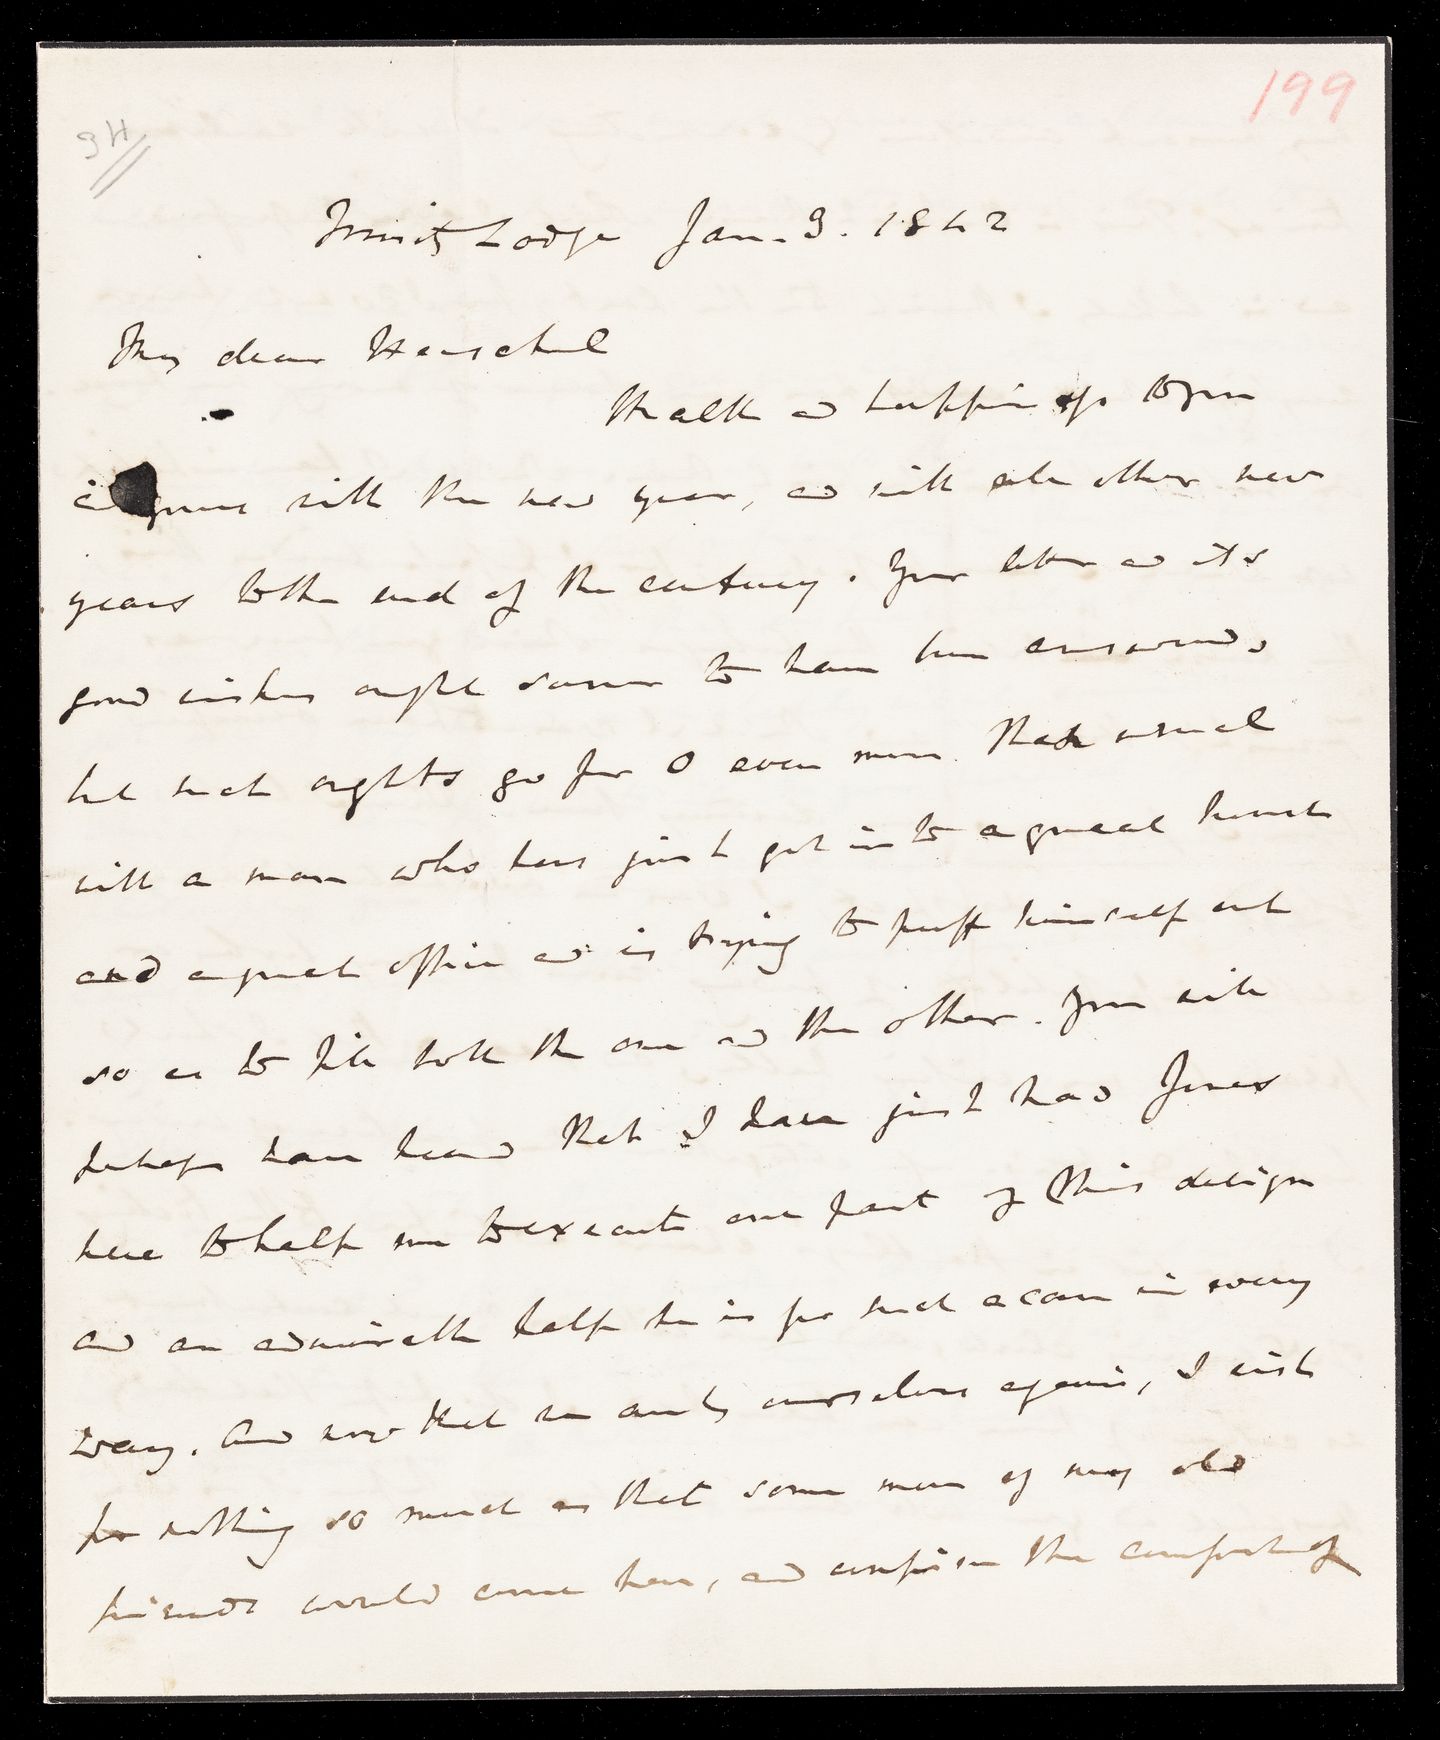 199
JH
Trinity Lodge Jan. 3. 1842
My dear Herschel
Health and happiness to you
and yours with the new year, and with all other new
years to the end of the century. Your letter and its
good wishes ought sooner to have been answered,
but such oughts go for 0 even more than usual
with a man who has just got into a great house
and a great office and is trying to puff himself out
so as to fill both the one and the other. You will
perhaps have heard that I have just had Jones
here to help me to execute one part of this design
and an admirable help he is for such a case in every
way. And now that we are by ourselves again, I wish
for nothing so much as that some more of my old
friends would come here, and the comfort of